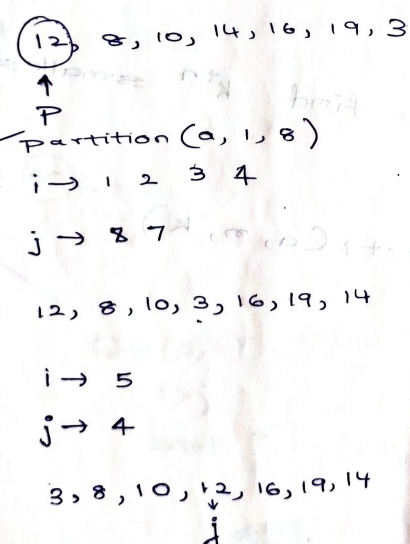 12, 8, 10, 14, 16, 19, 3
P
Partition (a, 1, 8)
i → 1 2 3 4
j → 8 7
12, 8, 10, 3, 16, 19, 14
i → 5
j → 4
3, 8, 10, 12, 16, 19, 14
j